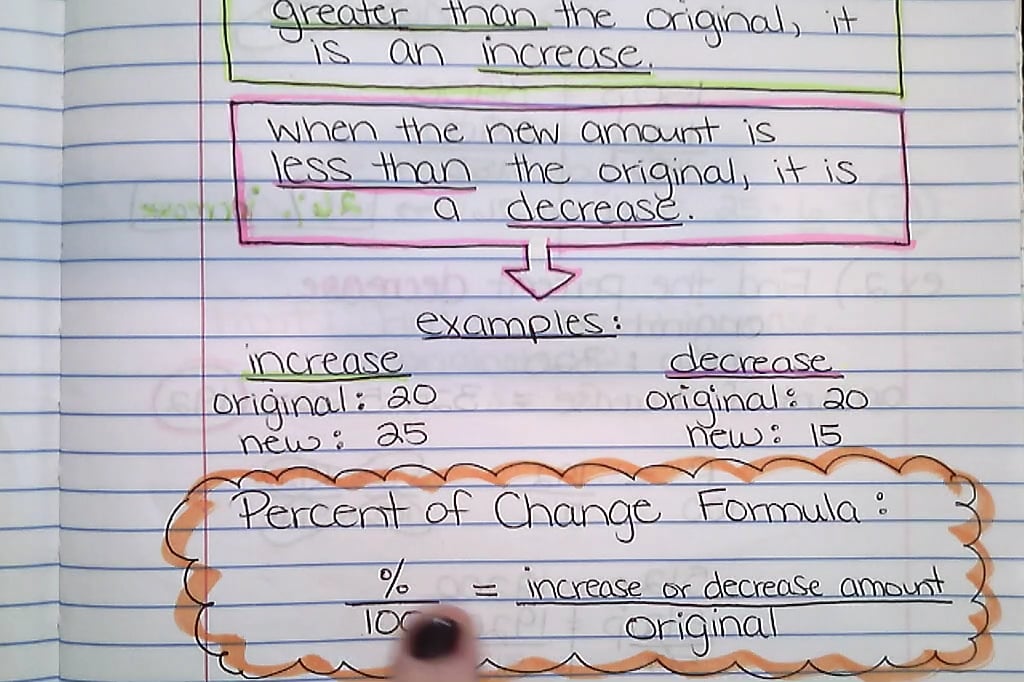 greater than the original, it
is an increase.
when the new amount is
less than the original, it is
a decrease.
examples:
increase
original: 20
new: 25
decrease
original: 20
new: 15
Percent of Change Formula:
% = increase or decrease amount
100 original